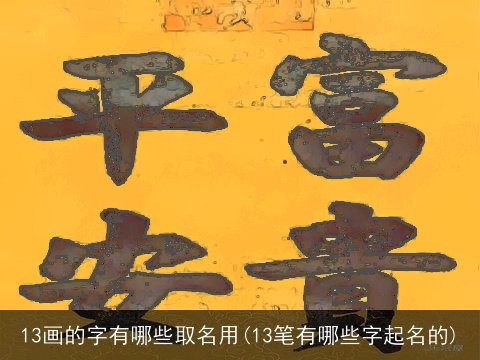 富貴
平安
13画的字有哪些取名用(13笔有哪些字起名的)